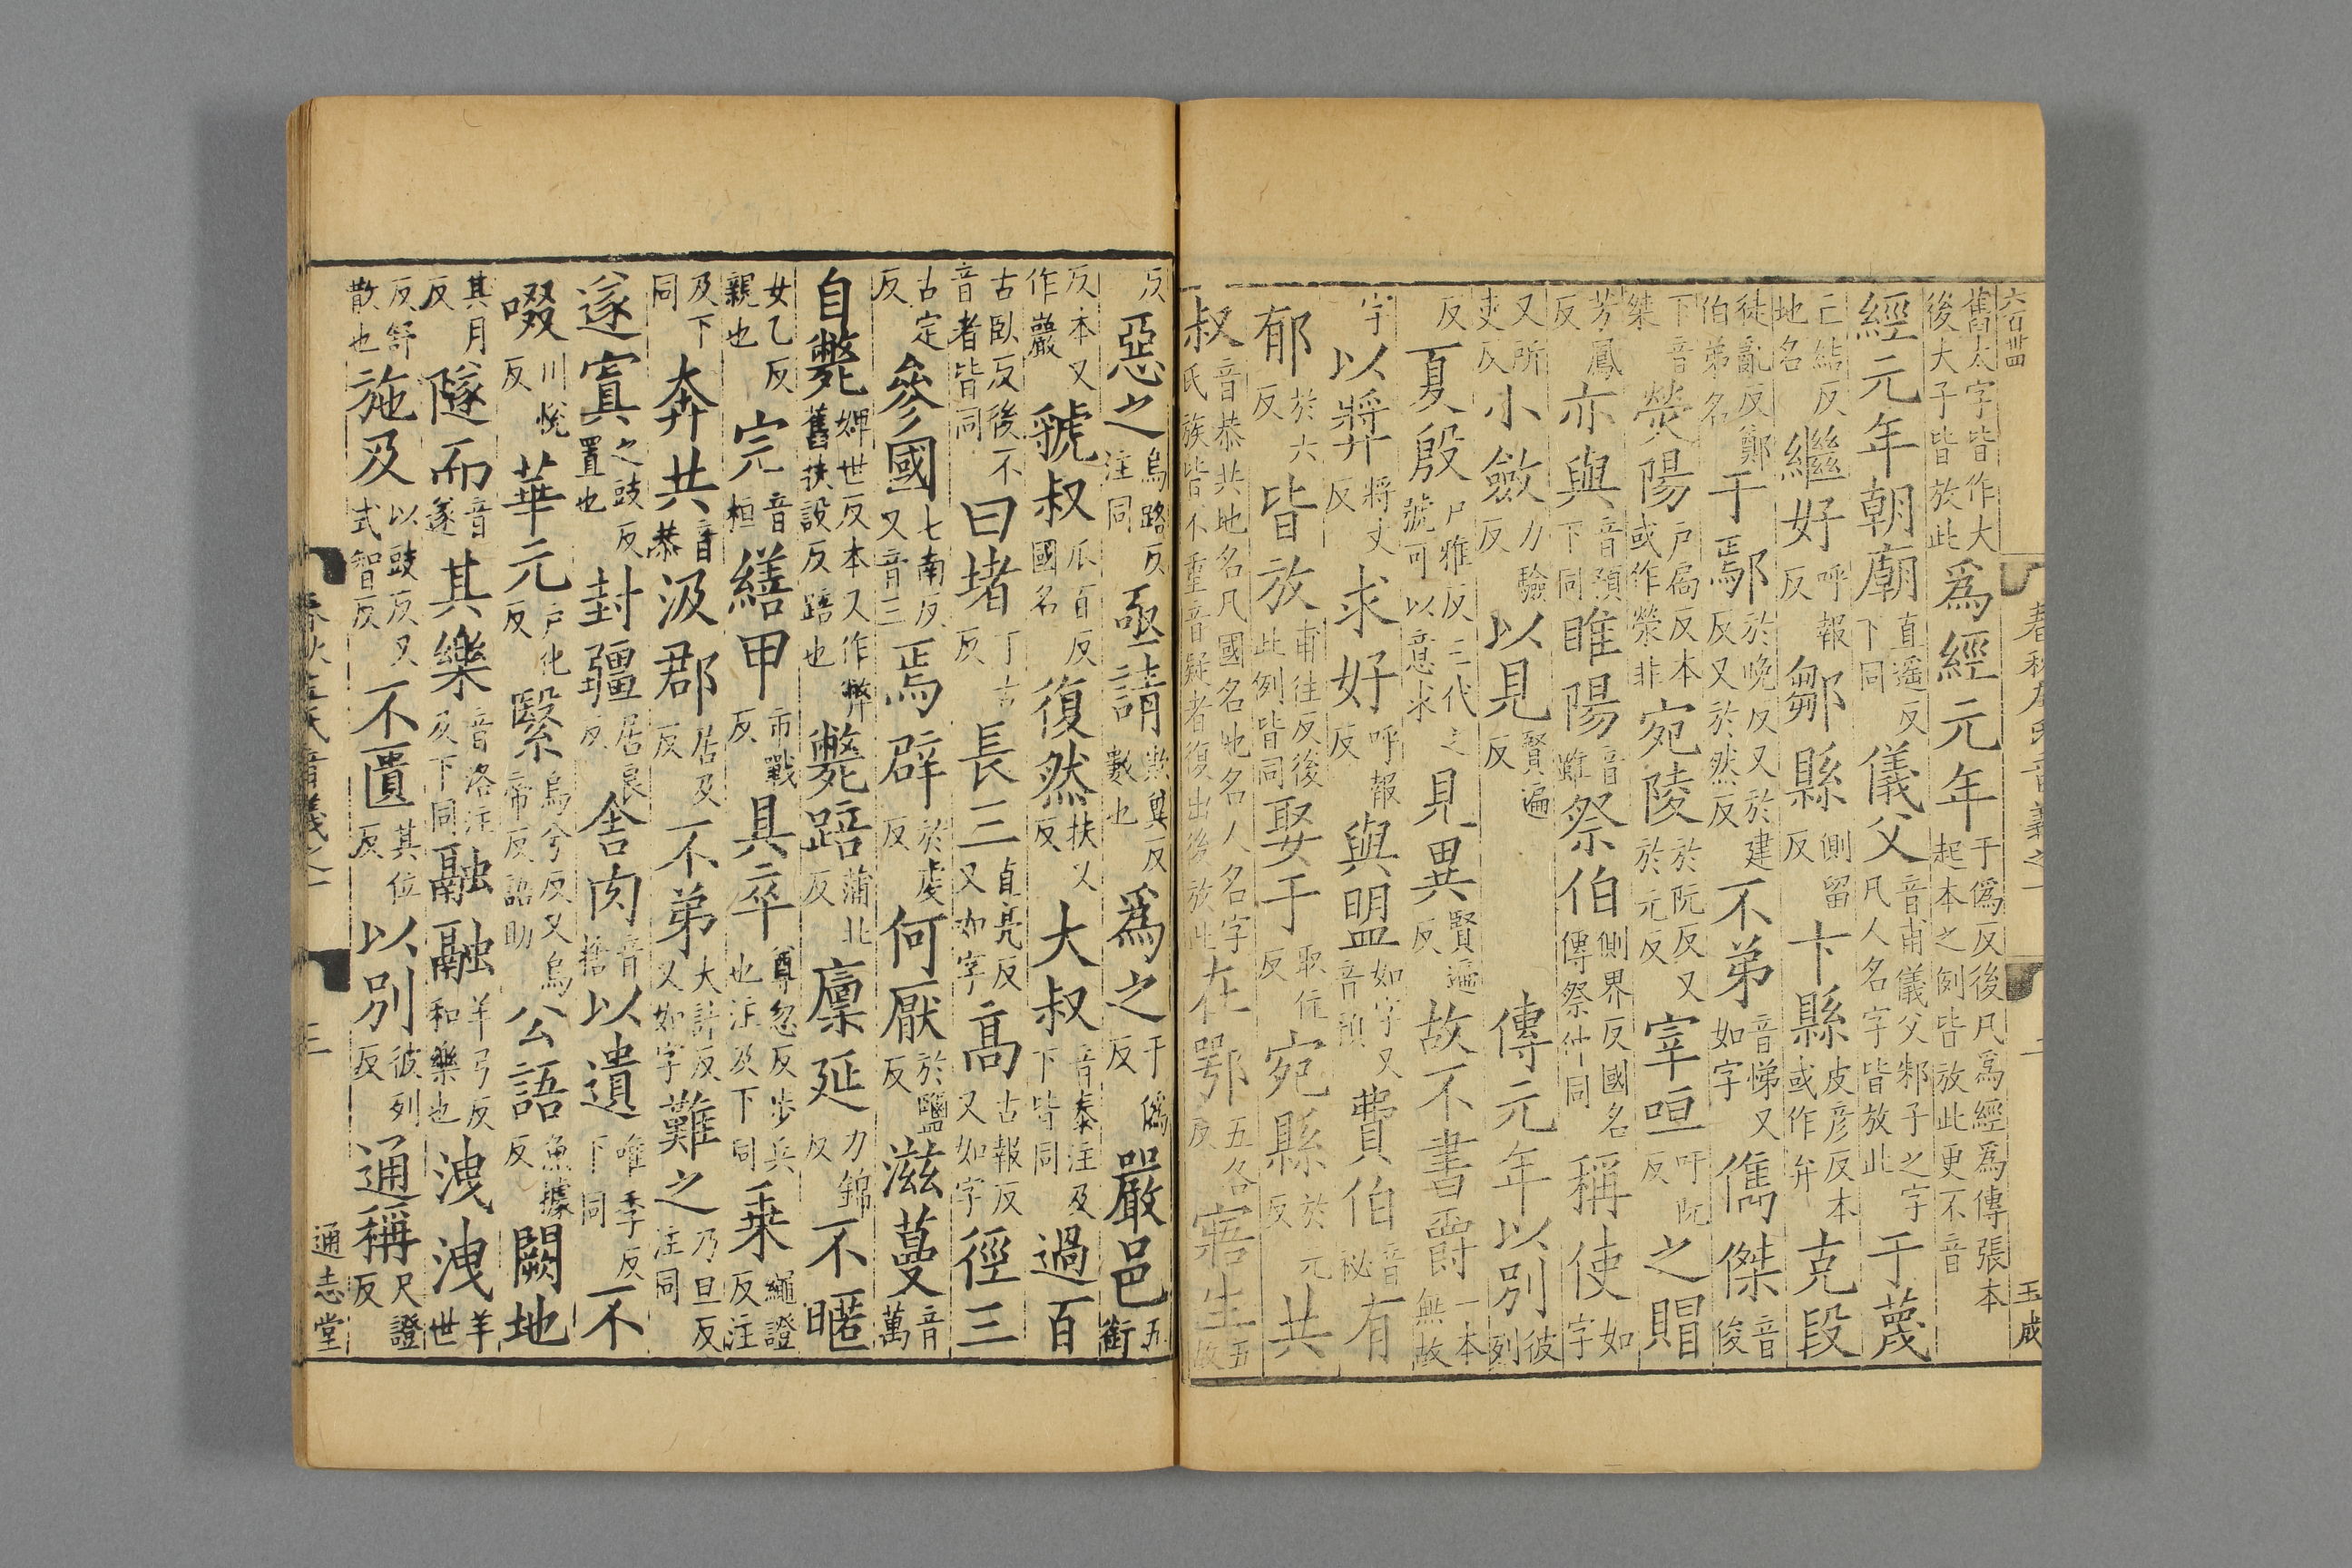 春秋左氏音義之一 二 玉成
舊太字皆作大後大子皆放此爲經元年于僞反後凡爲經爲傳張本起本之例皆放此更不音
經元年朝廟直遥反下同儀父音甫儀父邾子之字凡人名字皆放此于蔑
亡結反地名繼好呼報反鄒縣側留反卞縣皮彦反本或作弁克段
徒亂反鄭伯弟名于鄢於晚反又於建反又於然反不弟音悌又如字儁傑音俊
下音桀熒陽戶扃反本或作滎非宛陵於阮反又於元反宰咺吁阮反之賵
芳鳳反亦與音預下同睢陽音雖祭伯側界反國名傳祭仲同稱使如字
又所吏反小斂力驗反以見賢遍反傳元年以別彼列
反夏殷戶雅反三代之號可以意求見異賢遍反故不書爵一本無故
字以弉將丈反求好呼報反與盟如字又音預費伯音祕有
郁於六反皆放甫往反後此例皆同娶于取住反宛縣於元反共
叔音恭共地名凡國名地名人名字氏族皆不重音疑者復出後放此在鄂五各反寤生五故
反惡之烏路反注同亟請欺冀反數也爲之于僞反嚴邑五銜
反本又作巖虢叔瓜百反國名復然扶又反大叔音泰注及下皆同過百
古臥反後不音者皆同曰堵丁古反長三直亮反又如字高古報反又如字徑三
古定反參國七南反又音三焉辟於虔反何厭於鹽反滋蔓音萬
自斃婢世反本又作弊舊扶設反踣也斃踣蒲北反廩延力錦反不暱
女乙反親也完音桓繕甲市戰反具卒尊忽反步兵也注及下同乗繩證反注
及下同奔共音恭汲郡居及反不弟大計反又如字難之乃旦反注同
遂寘之豉反置也封疆居良反舍肉音捨以遺唯季反下同不
啜川悅反華元戶化反繄烏兮反又烏帝反語助公語魚據反闕地
其月反隧而音遂其樂音洛注及下同融融羊弓反和樂也洩洩羊世
反舒散也施及以豉反又式智反不匱其位反以別彼列反通稱尺證反
春秋左氏音義之一 三 通志堂